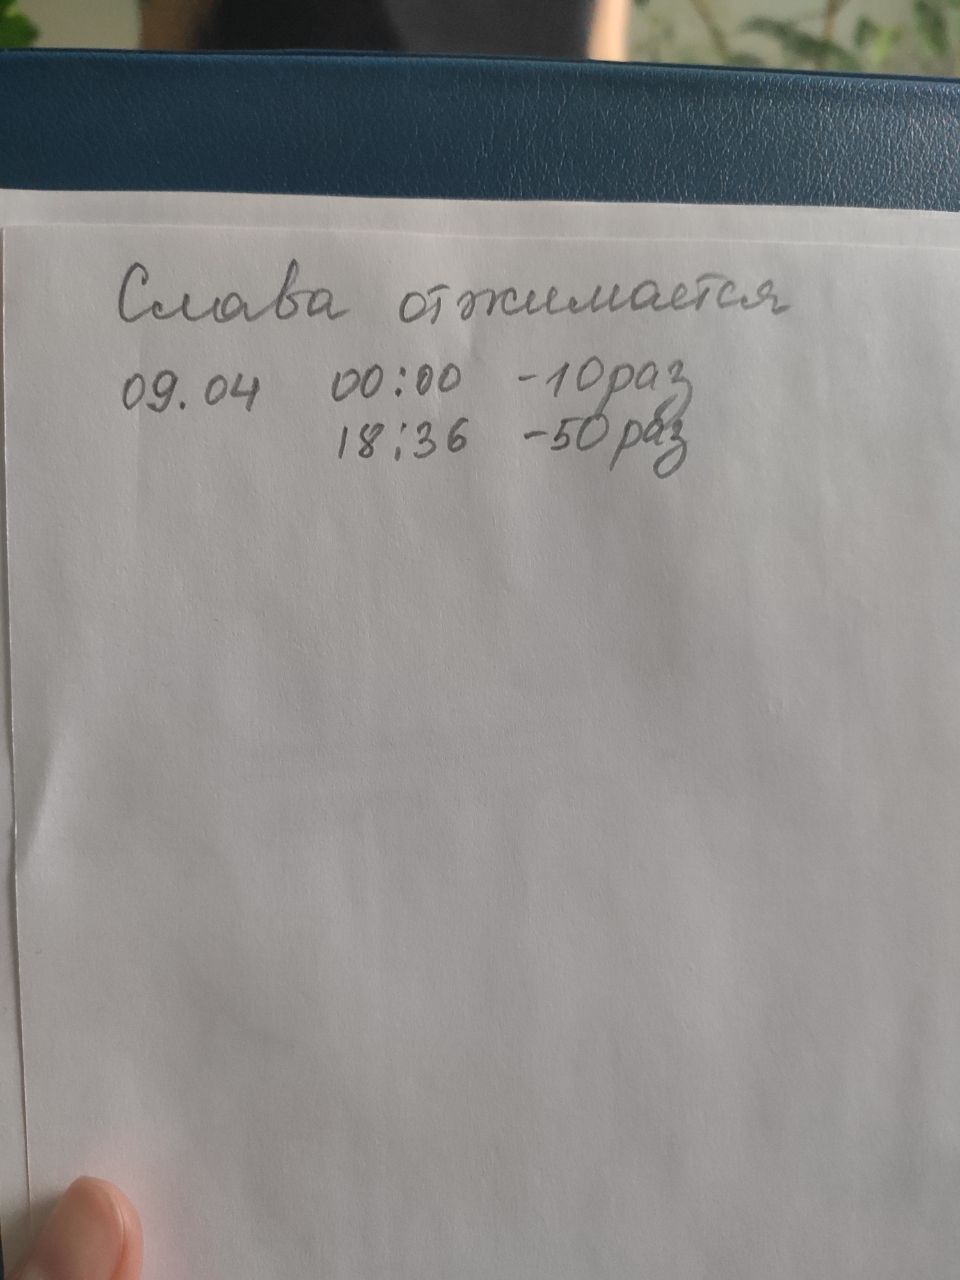 Слава отжимается
09.04 00:00 -10 раз
18:36 -50 раз